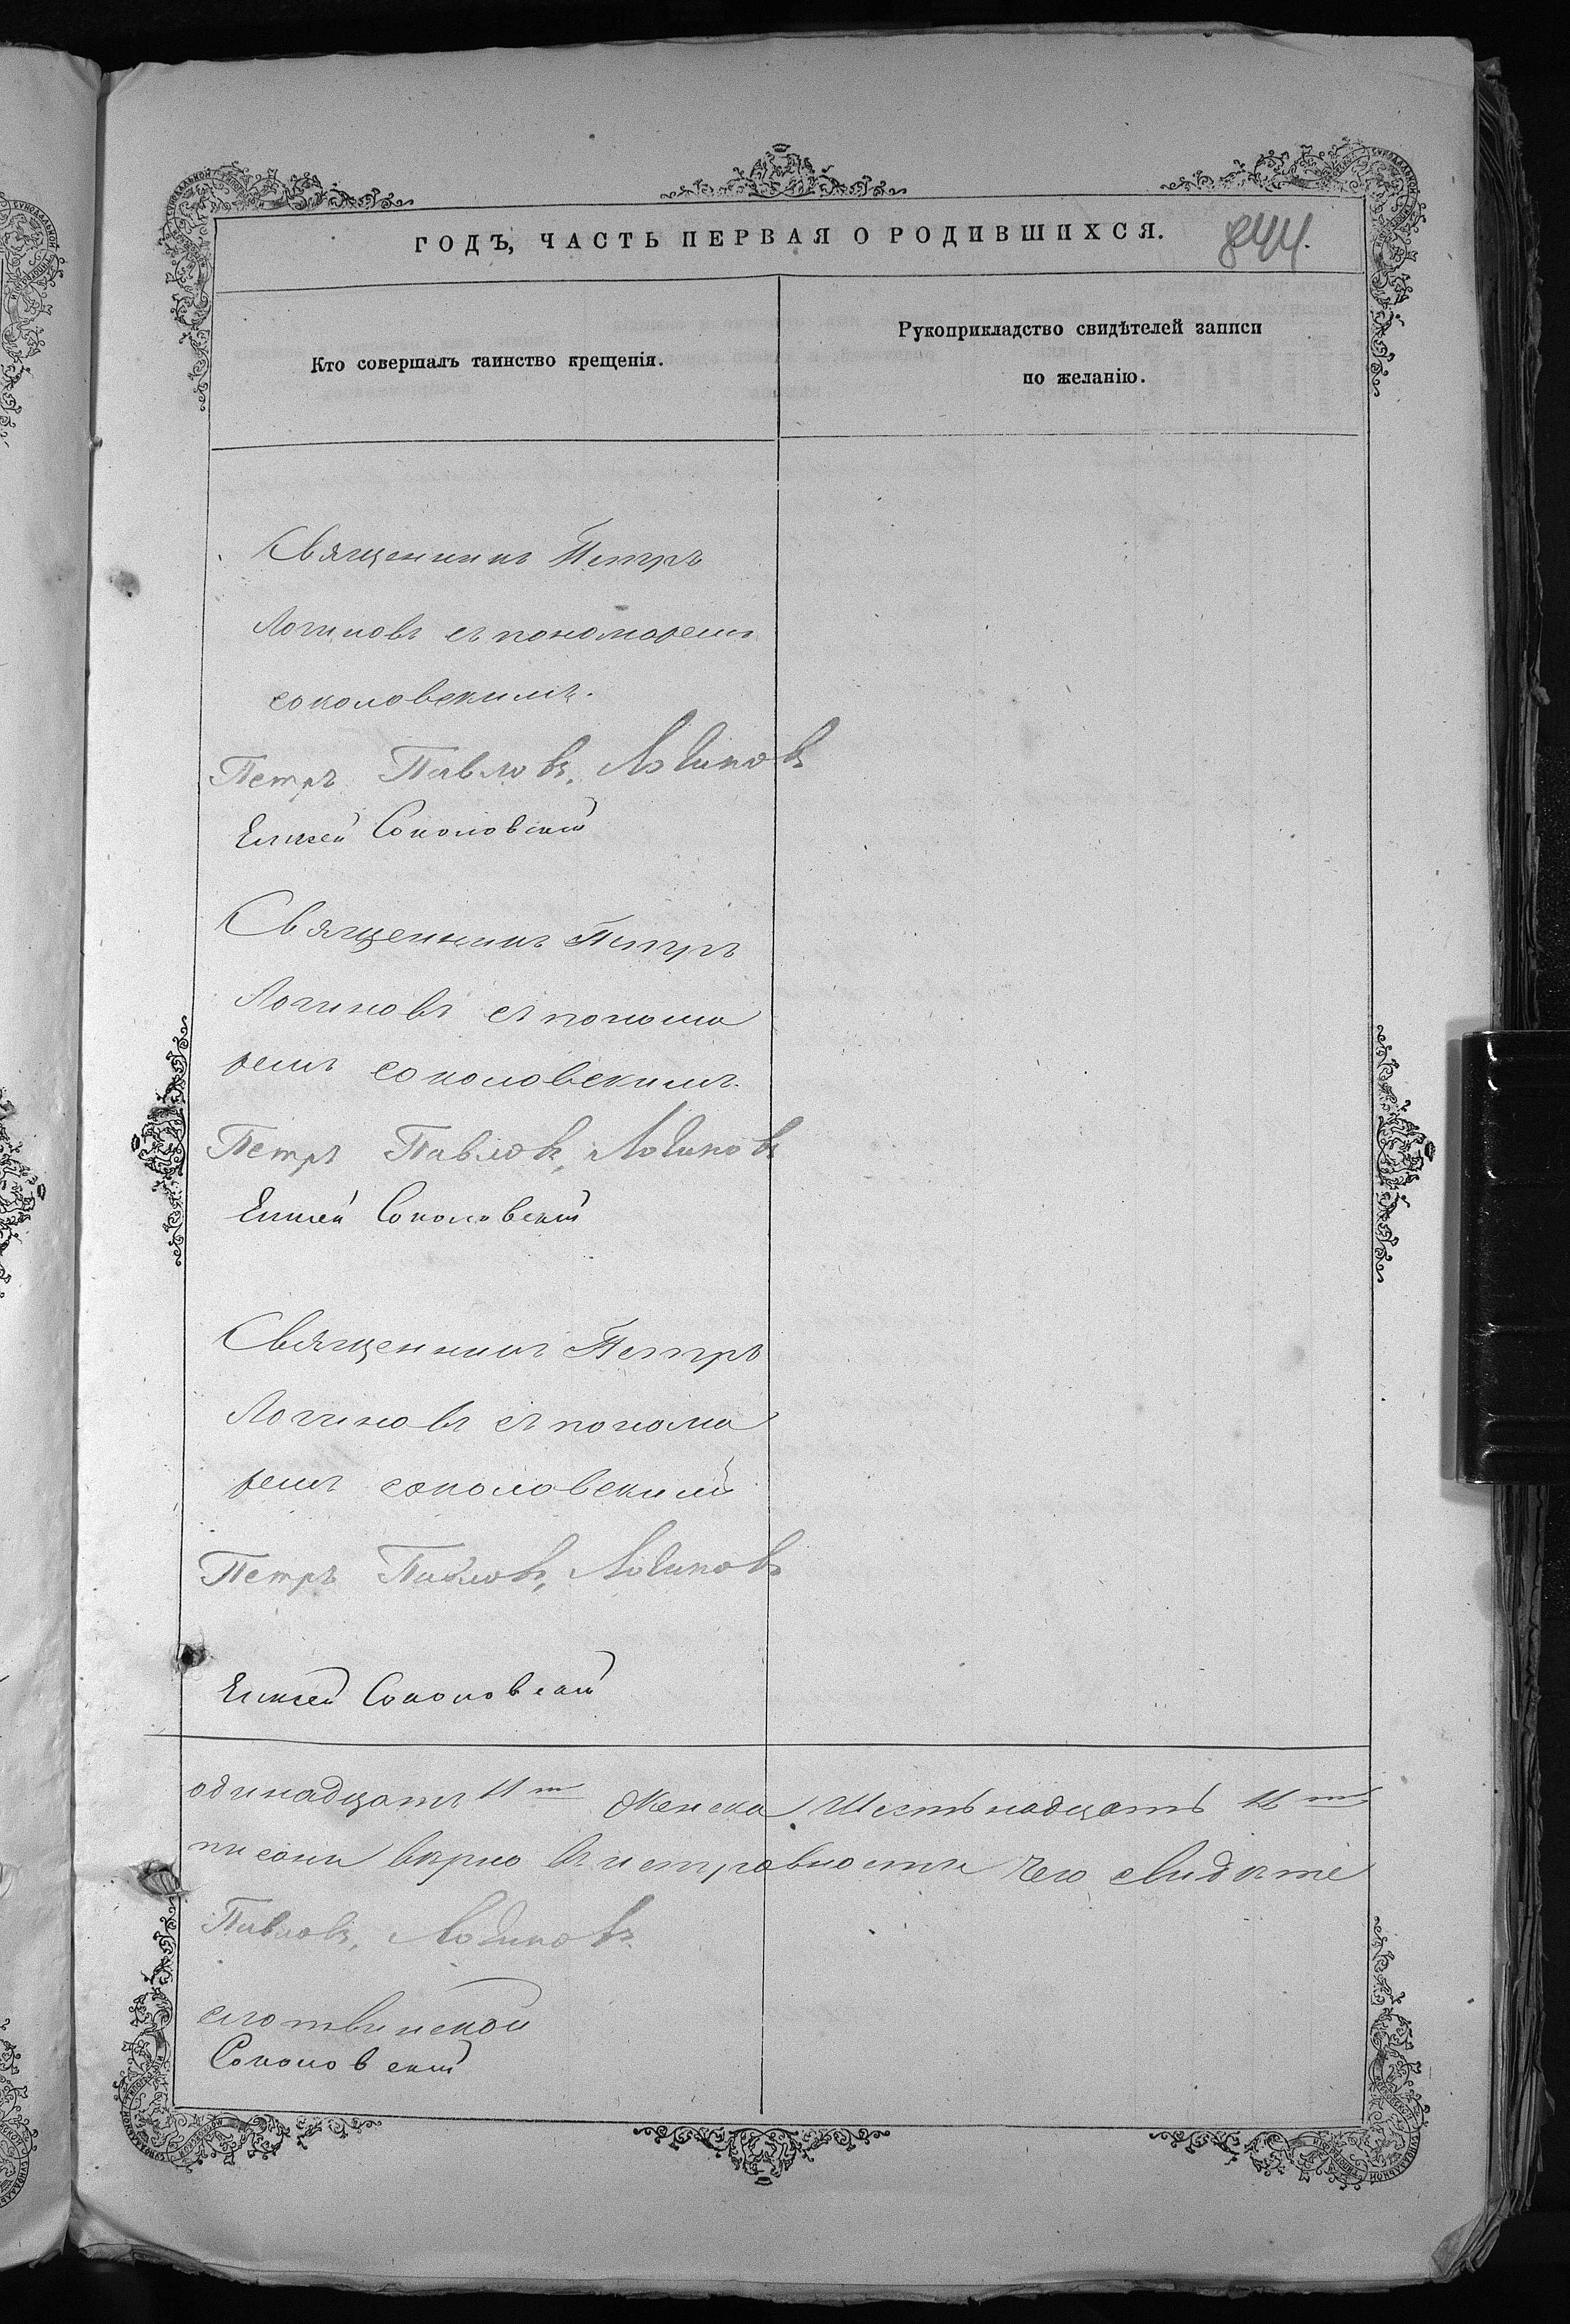 ГОДЪ, ЧАСТЬ ПЕРВАЯ О РОДИВШИХСЯ.
844.
Кто совершалъ таинство крещенія.
Рукоприкладство свидѣтелей записи
по желанію.
Священникъ Петръ
Логиновъ съ пономаремъ
соколовскимъ.
Петръ Павловъ, Логиновъ
Елисей Соколовскій
Священникъ Петръ
Логиновъ съ понома
ремъ соколовскимъ.
Петръ Павловъ, Логиновъ
Елисей Соколовскій
Священникъ Петръ
Логиновъ съ понома
ремъ соколовскимъ
Петръ Павловъ, Логиновъ
Елисей Соколовскій
одинадцать 11ть Женска Шестьнадцать 16ть
писаны вѣрно въ исправности чего свидѣте
Павловъ, Логиновъ
Соколовскій